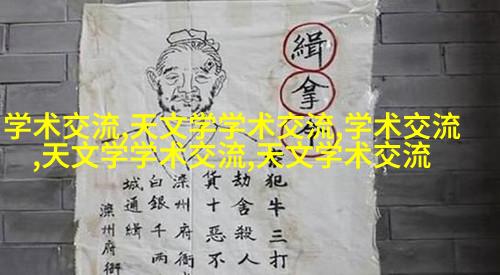 学术交流,天文学学术交流,学术交流
,天文学学术交流,天文学术交流
緝拿令
犯牛三打
劫舍殺人
貨十惡不
滦州府衙
白銀千两
城通緝
滦州府衙